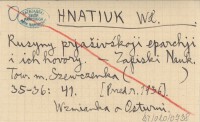 HNATIUK Wł.
Rusyny prjašivśkoji eparchiji
i ich hovory. — Zapiski Nauk.
Tow. im. Szewczenka (
35-36: 49. [Przedr. 1936].
Wzmianka o Osturni.